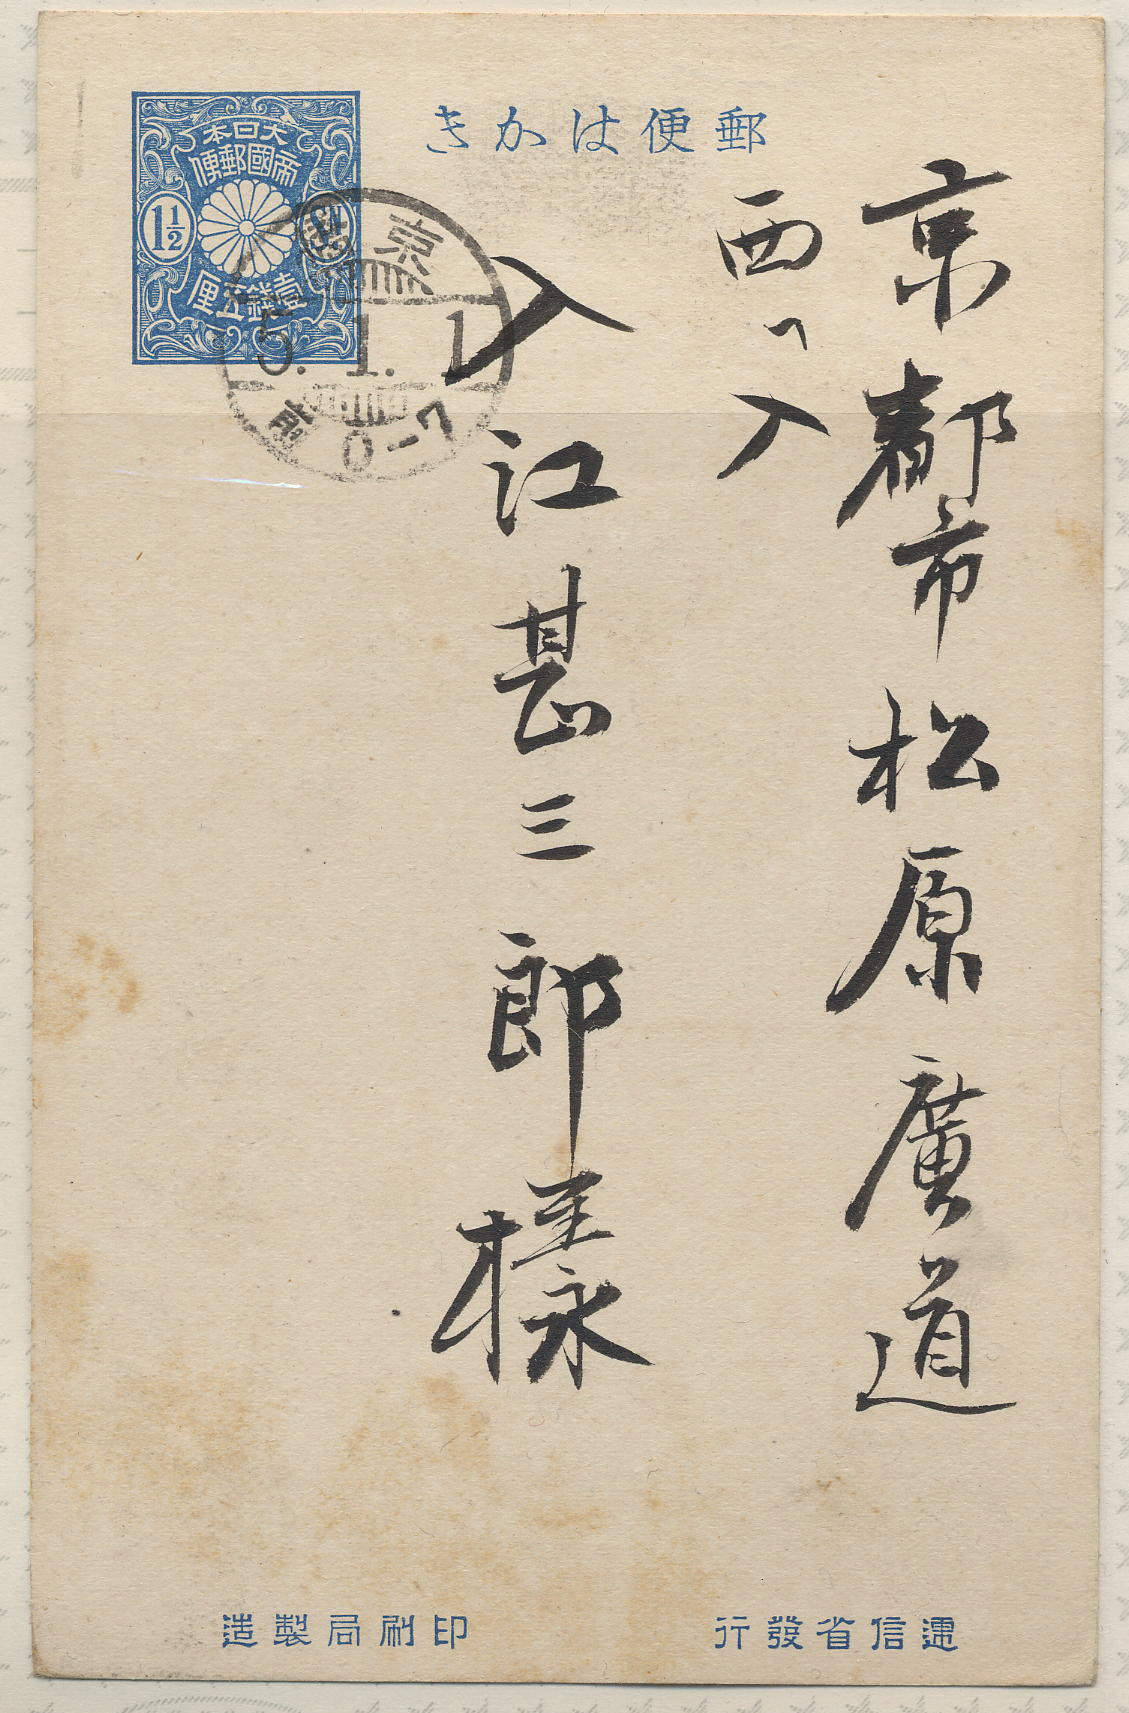 郵便はかき
大日本
帝國郵便
1½
壹錢五厘
京都
5.1.1
前0-7
京都市松原廣道
西へ入
入江甚三郎様
逓信省發行
印刷局製造